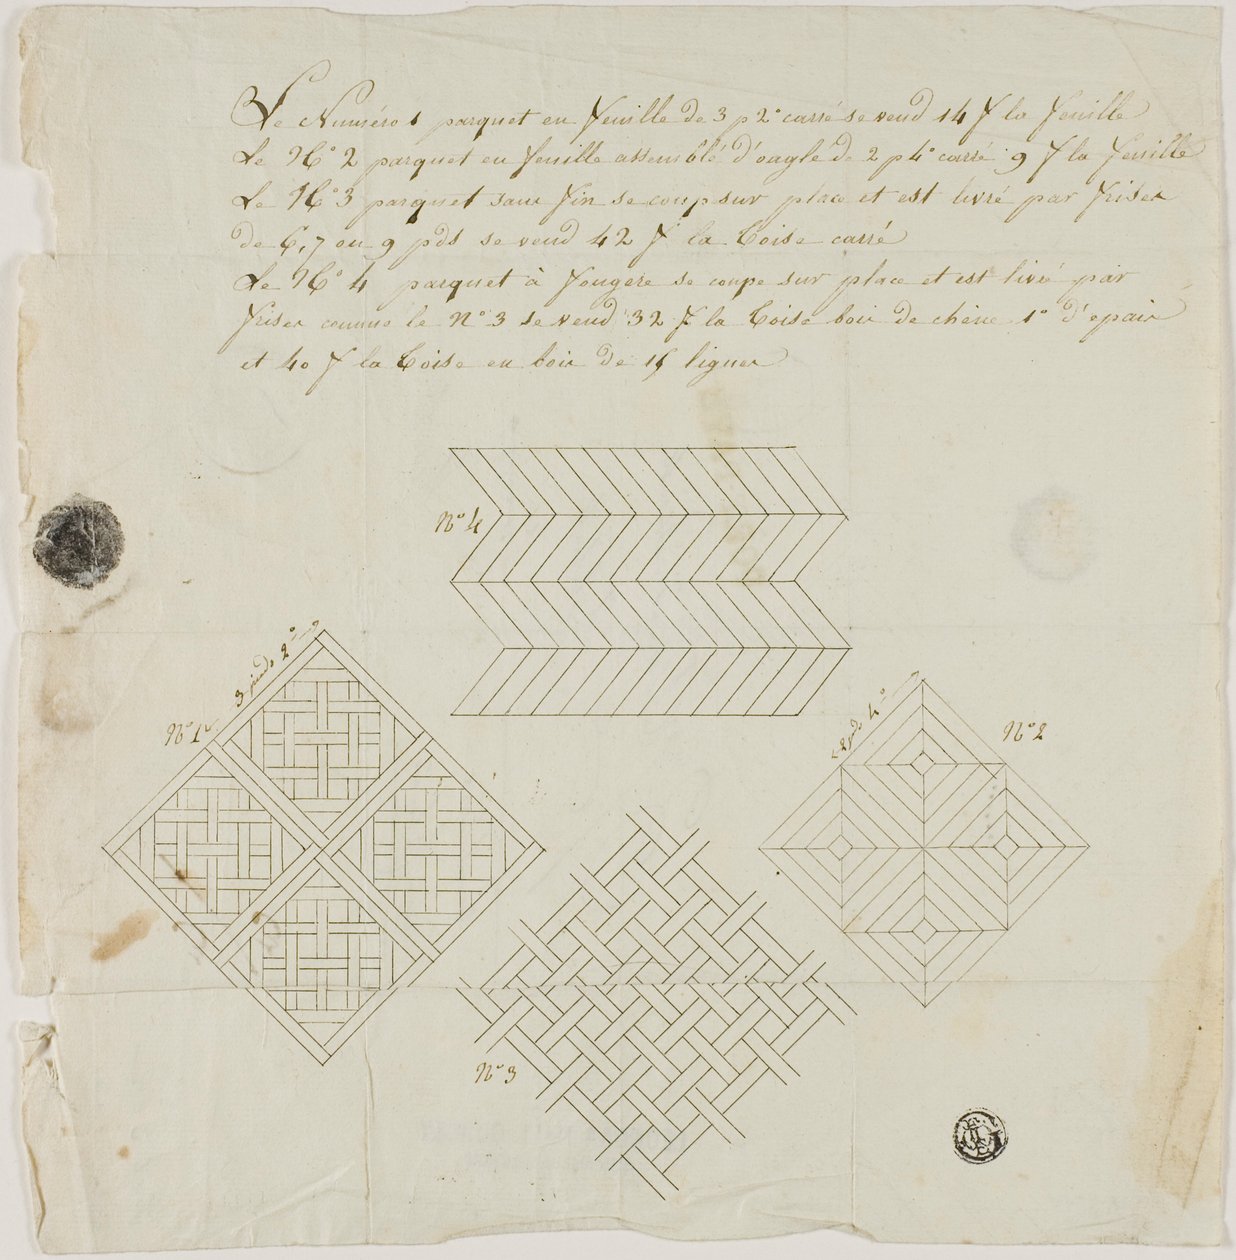 Le Numéro 1 parquet en feuille de 3 p 2° carré se vend 14 f la feuille
Le N° 2 parquet en feuille assemblé d'onglé de 2 p 4° carré 9 f la feuille
Le N° 3 parquet sans fin se coup sur place et est livré par frises
de 6, 7 ou 9 pds se vend 42 f la toise carré
Le N° 4 parquet à fougere se coupe sur place et est livré par
frises comme le N° 3 se vend 32 f la toise bois de chene 1° d'epais
et 40 f la toise en bois de 15 lignes
N° 4
3 pieds 2°
N° 1
2 pds 4°
N° 2
N° 3